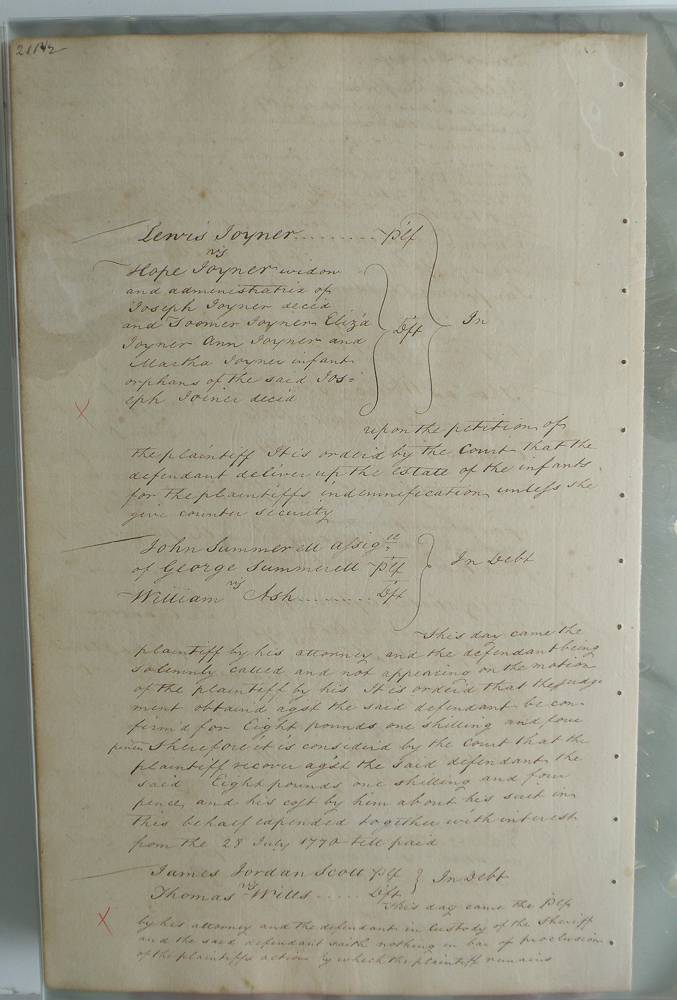 Lewis Joyner ......... Plf
vs
Hope Joyner widow
and administratrix of
Joseph Joyner decid
and Toomer Joyner Eliz'd
Joyner Ann Joyner and Dft In
Martha Joyner infant
orphans of the said Jos=
eph Joiner decid
upon the petition of
the plaintiff It is order'd by the Court that the
defendant deliver up the estate of the infants
for the plaintiffs indemnification unless she
give counter security
John Summerell Assig
of George Summerell Plf In Debt
vs
William Ash ......... Dft
This day came the
plaintiff by his attorney and the defendant being
solemnly called and not appearing on the motion
of the plaintiff by his It is order'd that the judge
ment obtain'd agst the said defendant be con
firm'd for Eight pounds one shilling and four
pence Therefore it is consider'd by the Court that the
plaintiff recover ag'st the said defendant the
said Eight pounds one shilling and four
pence and his cost by him about his suit in
this behalf expended together with interest
from the 28 July 1770 till paid
James Jordan Scott Plf In Debt
vs
Thomas Wills ...... Dft
This day came the Plf
by his attorney and the defendant in Custody of the Sheriff
and the said defendant saith nothing in bar of preclusion
of the plaintiffs action by which the plaintiff remains